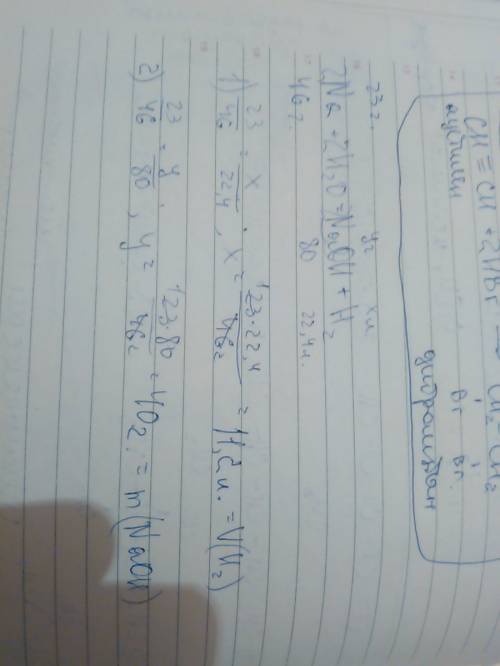 CH ≡ CH + 2HBr → CH₂-CH₂
ацетилен Br Br
дибромэтан
23г. yг xл
2Na + 2H₂O = NaOH + H₂
46г. 80 22,4л.
1) 23/46 = x/22,4 , x = 23·22,4/46₂ = 11,2л. = V(H₂)
2) 23/46 = y/80 , y = 23·80/46₂ = 40г. = m(NaOH)